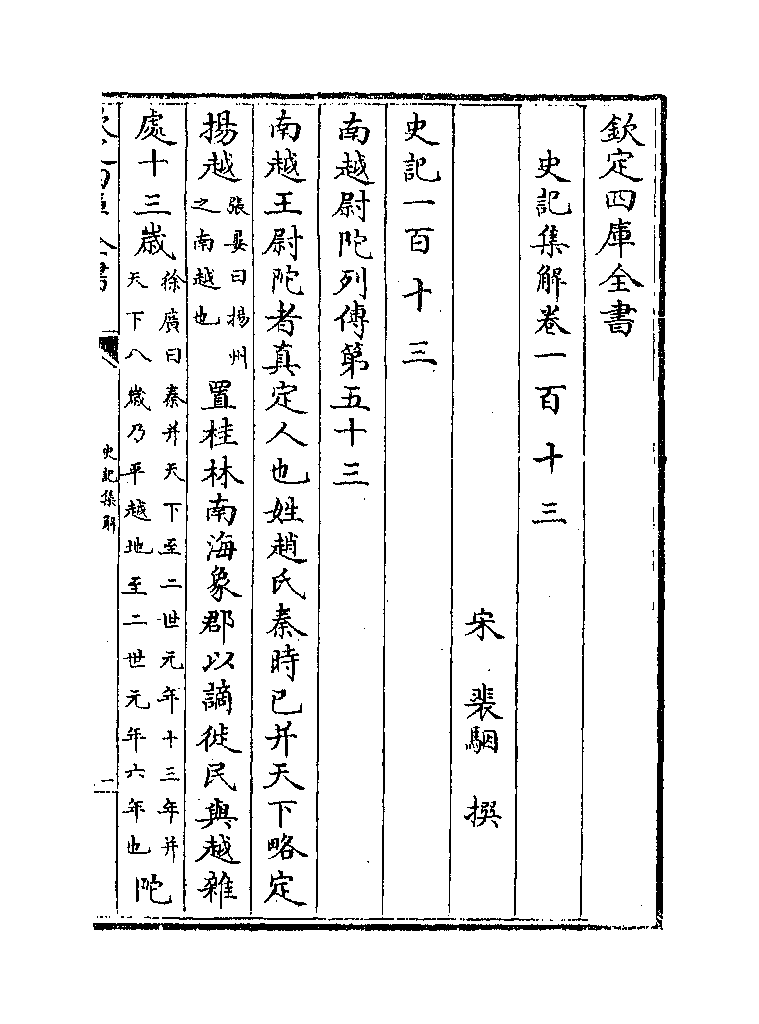 欽定四庫全書
史記集解卷一百十三
宋 裴駰 撰
史記一百十三
南越尉陀列傳第五十三
南越王尉陀者真定人也姓趙氏秦時已并天下略定
揚越張晏曰揚州之南越也置桂林南海象郡以謫徙民與越雜
處十三歲徐廣曰秦并天下至二世元年十三年并天下八歲乃平越地至二世元年六年也陀
史記集解
一